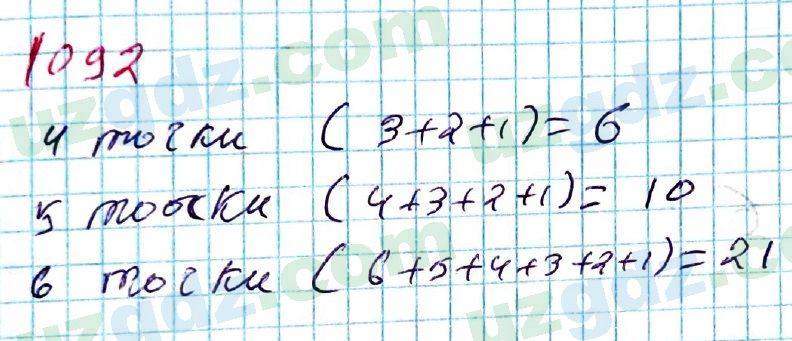 1092
4 точки (3+2+1)=6
5 точки (4+3+2+1)= 10
6 точки (6+5+4+3+2+1)=21
uzgdz.com